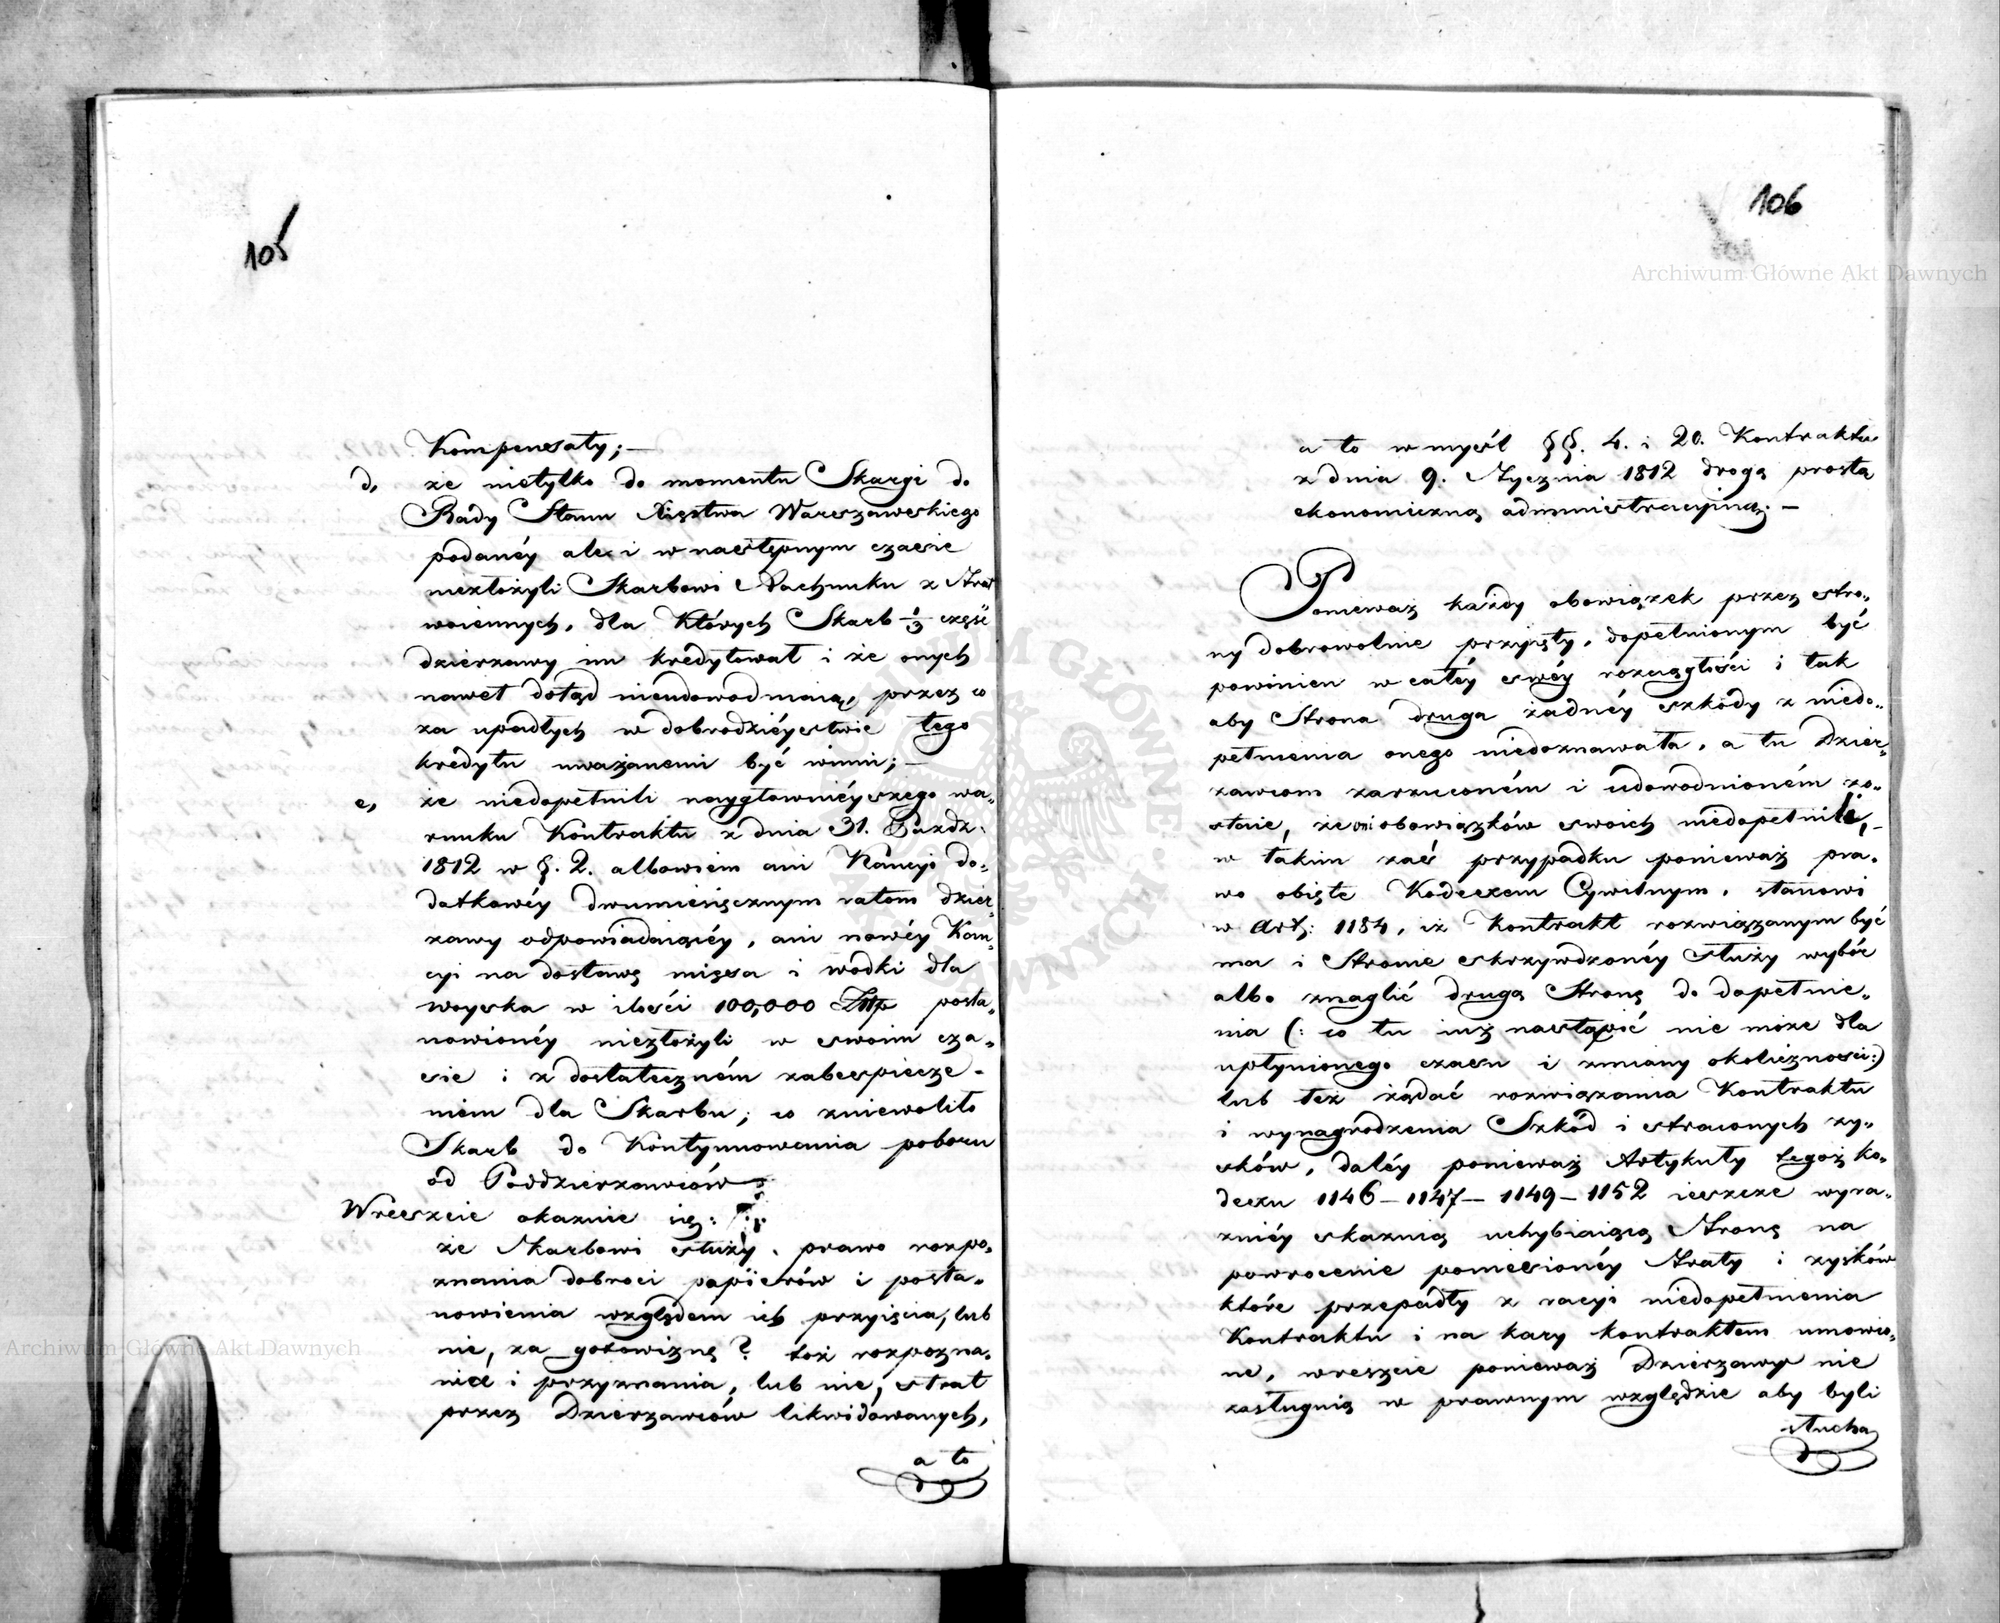 105
Kompensaty; —
d, że nietylko do momentu Skargi do
Rady Stanu Xięstwa Warszawskiego
podanéy ale i w następnym czasie
niezłożyli Skarbowi Rachunku z Strat
woiennych, dla których Skarb 1/3 część
dzierzawy im kredytował i że onych
nawet dotąd nieudowodniaią, przez co
za upadłych w dobrodzieystwie tego
kredytu uważanemi być winni; —
e, że niedopełnili naygłownieyszego wa„
runku Kontraktu z dnia 31. Pazdz:
1812 w §. 2. albowiem ani Kaucyi do„
datkowéy dwumiesięcznym ratom dzier„
zawy odpowiadaiącéy, ani nowéy Kau„
cyi na dostawę mięsa i wodki dla
woyska w ilości 100,000 Złtp posta„
nowionéy niezłożyli w swoim cza„
sie i z dostateczném zabespiecze„
niem dla Skarbu; co zniewoliło
Skarb do Kontynuowania poboru
od Poddzierzawców;
Wreszcie okazuie się:
że Skarbowi służy prawo rozpo„
znania dobroci papierów i posta„
nowienia względem ich przyięcia, lub
nie, za gotowiznę? toż rozpozna„
nia i przyznania, lub nie, strat
przez Dzierzawców likwidowanych,
a to
106
a to w myśl §§. 4. i 20. Kontraktu
z dnia 9. Stycznia 1812 drogą prostą
ekonomiczną administracyiną. —
Ponieważ każdy obowiązek przez stro„
ny dobrowolnie przyięty, dopełnionym być
powinien w całéy swéy rozciągłości i tak
aby Strona druga żadnéy szkody z niedo„
pełnienia onego niedoznawała, a tu Dzier„
zawcom zarzuconém i udowodnioném zo„
staie, że oni obowiązków swoich niedopełnili, —
w takim zaś przypadku ponieważ pra„
wo obięte Kodexem Cywilnym, stanowi
w Art: 1184, iż Kontrakt rozwiązanym być
ma i Stronie skrzywdzonéy służy wybór
albo znaglić drugą Stronę do dopełnie„
nia (: co tu iuż nastąpić nie może dla
upłynionego czasu i zmiany okoliczności:)
lub też żądać rozwiązania Kontraktu
i wynagrodzenia Szkód i straconych zy„
sków, daléy ponieważ Artykuły tegoż ko„
dexu 1146 — 1147 — 1149 — 1152 ieszcze wyra„
zniéy skazuią uchybiaiącą Stronę na
powrocenie poniesionéy Straty i zysków
które przepadły z racyi niedopełnienia
Kontraktu i na kary kontraktem umowio„
ne, wreszcie ponieważ Dzierzawcy nie
zasługuią w prawnym względzie aby byli
słucha